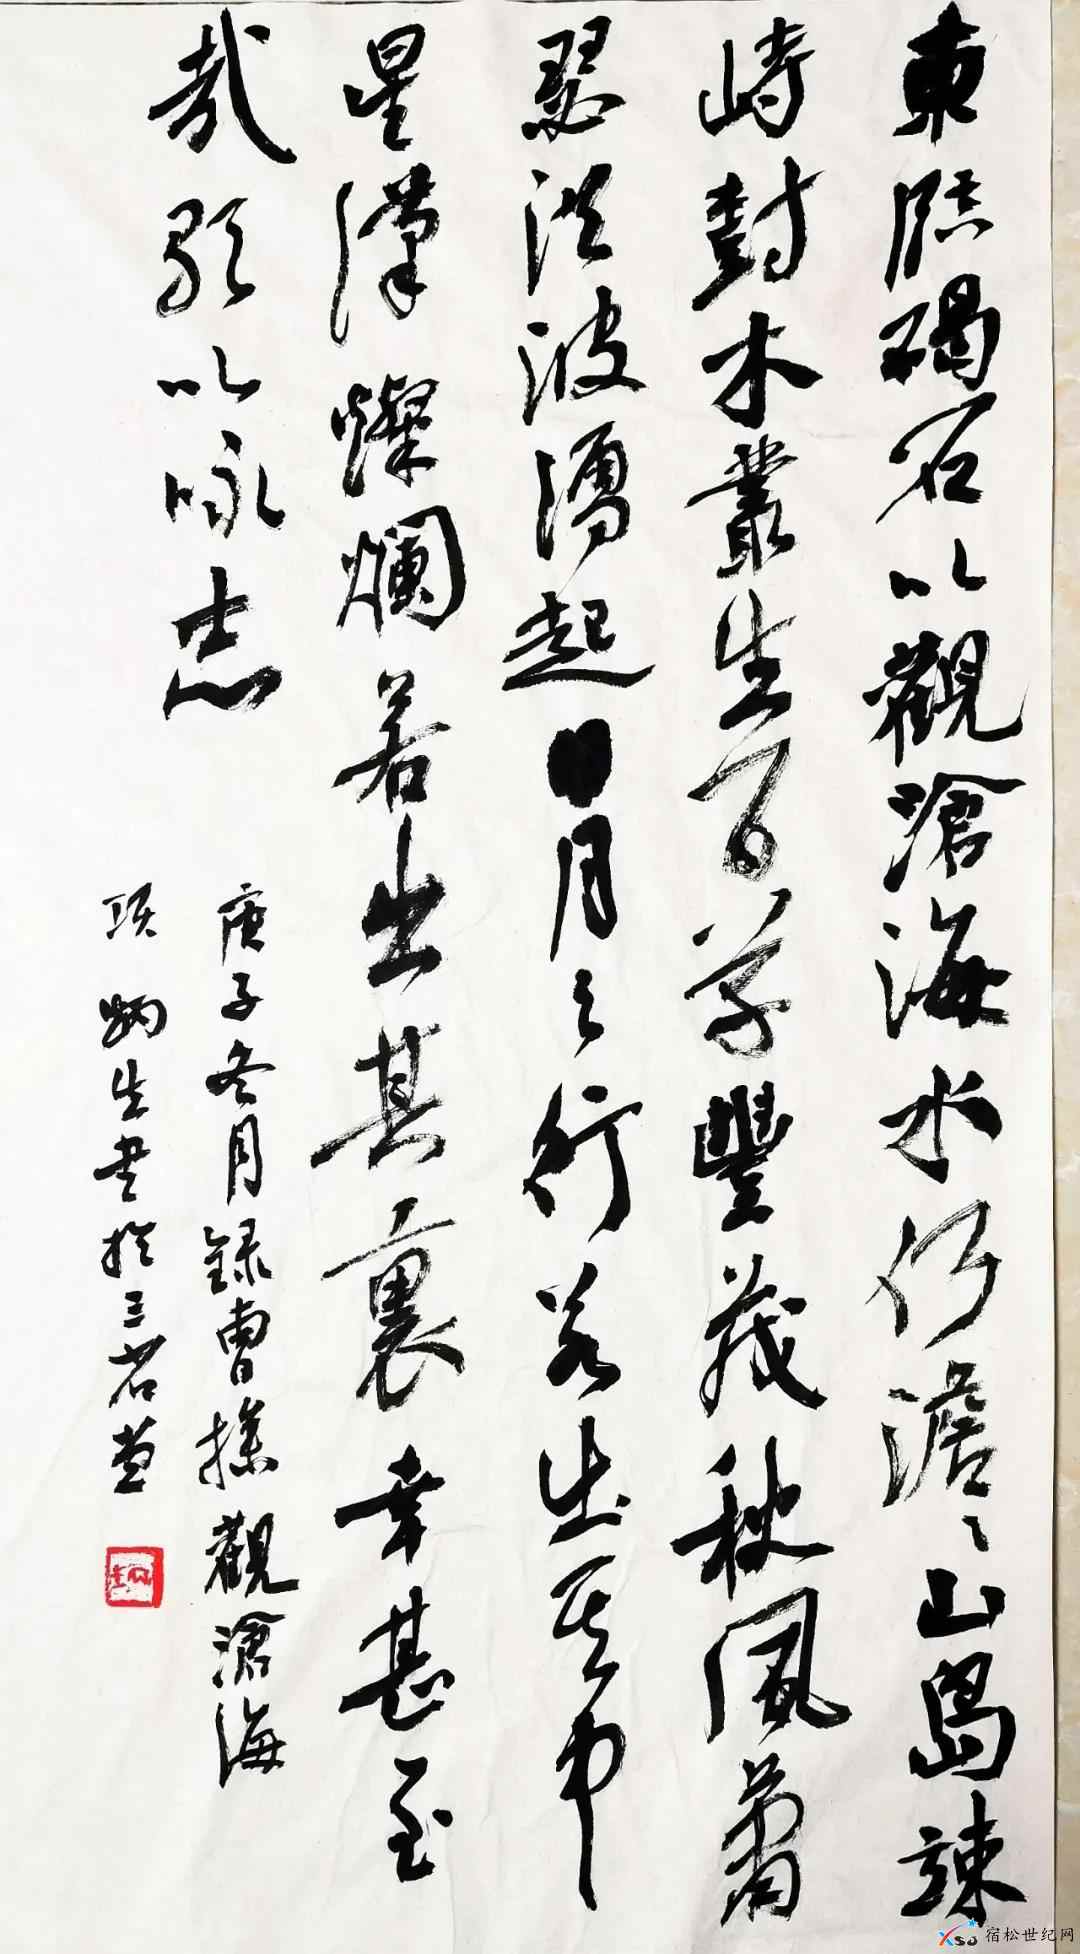 東臨碣石以觀滄海水何澹〻山島竦
峙樹木叢生百草豐茂秋風蕭
瑟洪波湧起日月之行若出其中
星漢燦爛若出其裏幸甚至
哉歌以咏志
庚子冬月録曹操觀滄海
项炳生书於三
宿松世纪网